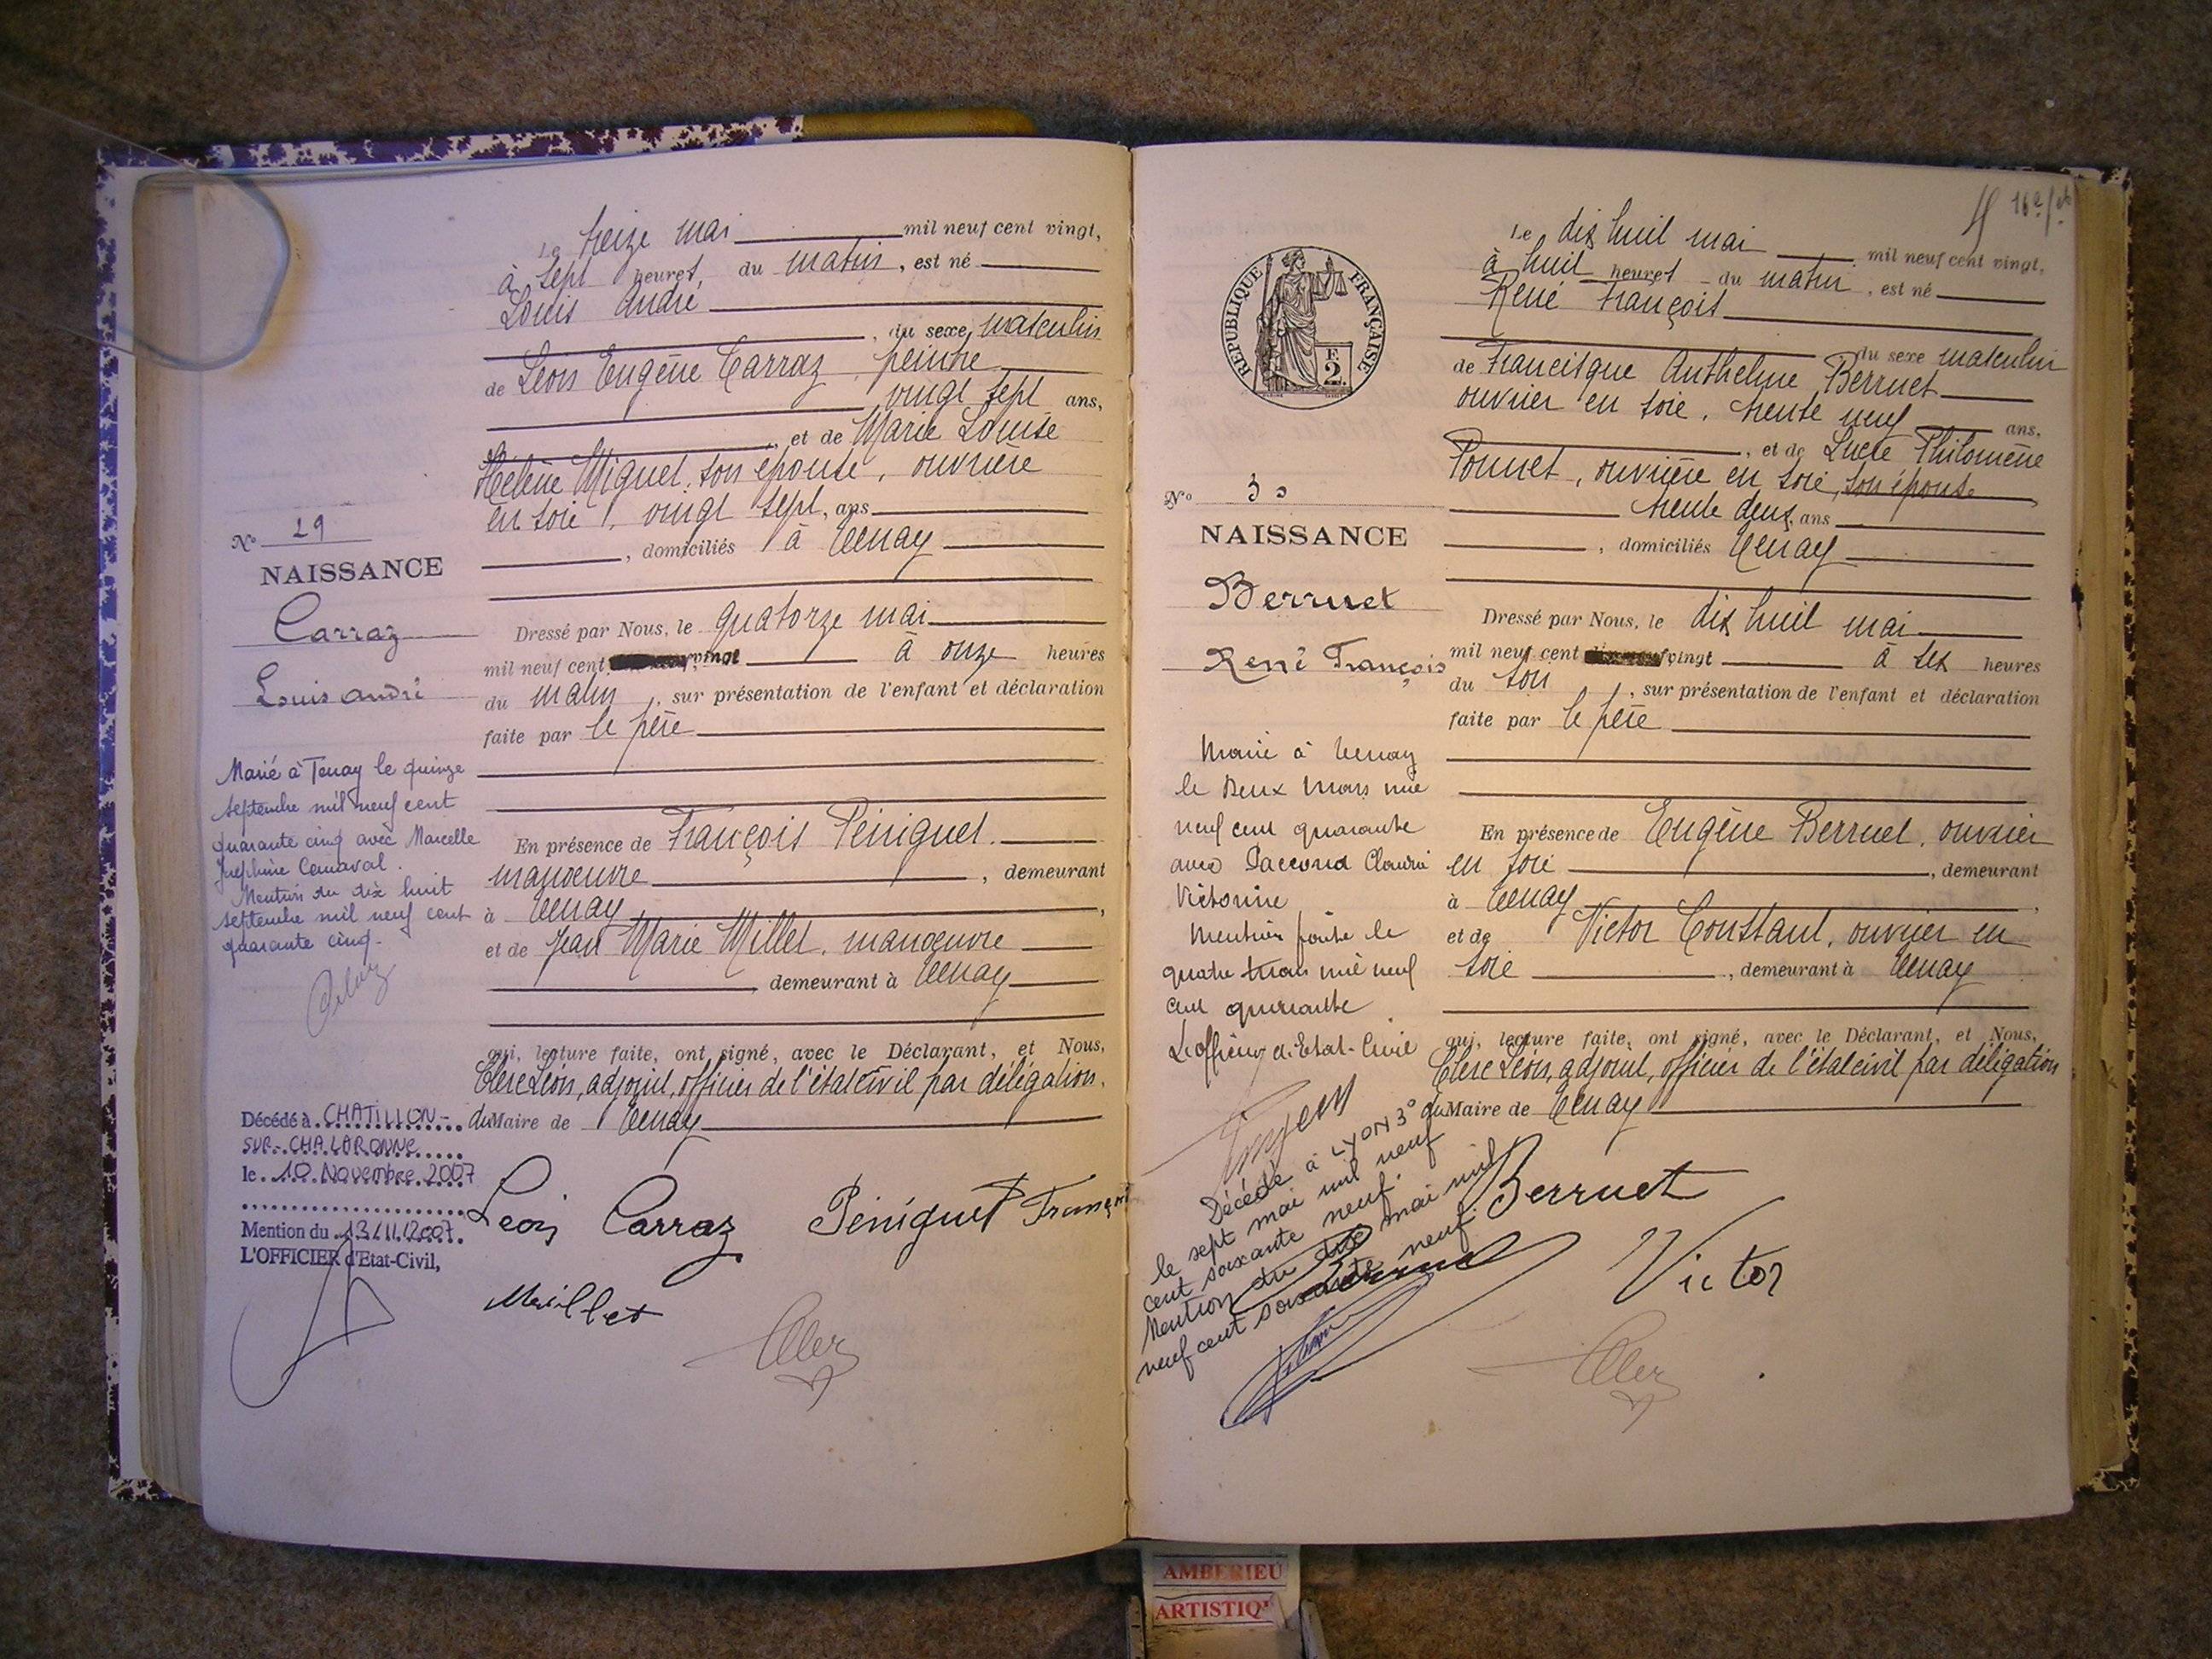 Le treize mai mil neuf cent vingt,
à sept heures, du matin, est né
Louis André
, du sexe masculin
de Léon Eugène Carraz, peintre
vingt sept ans,
, et de Marie Louise
Hélène Miguet, son épouse, ouvrière
en soie, vingt sept, ans
, domiciliés à Tenay
No 29
NAISSANCE
Carraz
Louis André
Dressé par Nous, le quatorze mai
mil neuf cent vingt à onze heures
du matin, sur présentation de l'enfant et déclaration
faite par le père
Marié à Tenay le quinze
septembre mil neuf cent
quarante cinq avec Marcelle
Joséphine
Mention du dix huit
septembre mil neuf cent
quarante cinq.
En présence de François Péniguet.
manœuvre, demeurant
à Tenay,
et de Jean Marie Millet, manœuvre
, demeurant à Tenay
qui, lecture faite, ont signé, avec le Déclarant, et Nous,
Clerc Léon, adjoint, officier de l'état civil par délégation,
du Maire de Tenay
Décédé à CHATILLON-
SUR-CHALARONNE
le 10 Novembre 2007
Mention du 13/11/2007
L'OFFICIER d'Etat-Civil,
Léon Carraz Péniguet François
Millet
Clerc
Le dix huit mai mil neuf cent vingt,
à huit heures du matin, est né
René François
du sexe masculin
de Francisque Anthelme Berruet
ouvrier en soie, trente neuf ans,
, et de Lucie Philomène
Ponnet, ouvrière en soie, son épouse
trente deux, ans
, domiciliés Tenay
REPUBLIQUE FRANÇAISE
F.
2.
No 30
NAISSANCE
Berruet
René François
Dressé par Nous, le dix huit mai
mil neuf cent vingt à six heures
du soir, sur présentation de l'enfant et déclaration
faite par le père
Marié à Tenay
le deux mars mil
neuf cent quarante
avec Paccoud Claudia
Victorine
Mention faite le
quatre mars mil neuf
cent quarante
L'officier d'Etat-Civil
En présence de Eugène Berruet, ouvrier
en soie, demeurant
à Tenay,
et de Victor Constant, ouvrier en
soie, demeurant à Tenay
qui, lecture faite, ont signé, avec le Déclarant, et Nous,
Clerc Léon, adjoint, officier de l'état civil par délégation
du Maire de Tenay
Décédé à LYON 3°
le sept mai mil neuf
cent soixante neuf.
Mention du dix mai mil
neuf cent soixante neuf.
Berruet
Victor
Clerc
AMBERIEU
ARTISTIQ